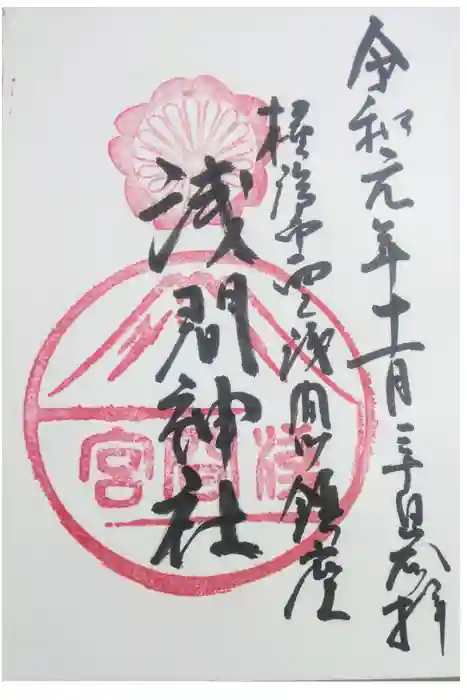 令和元年十一月三十日参拝
横浜市西区浅間町鎮座
浅間神社
浅間宮